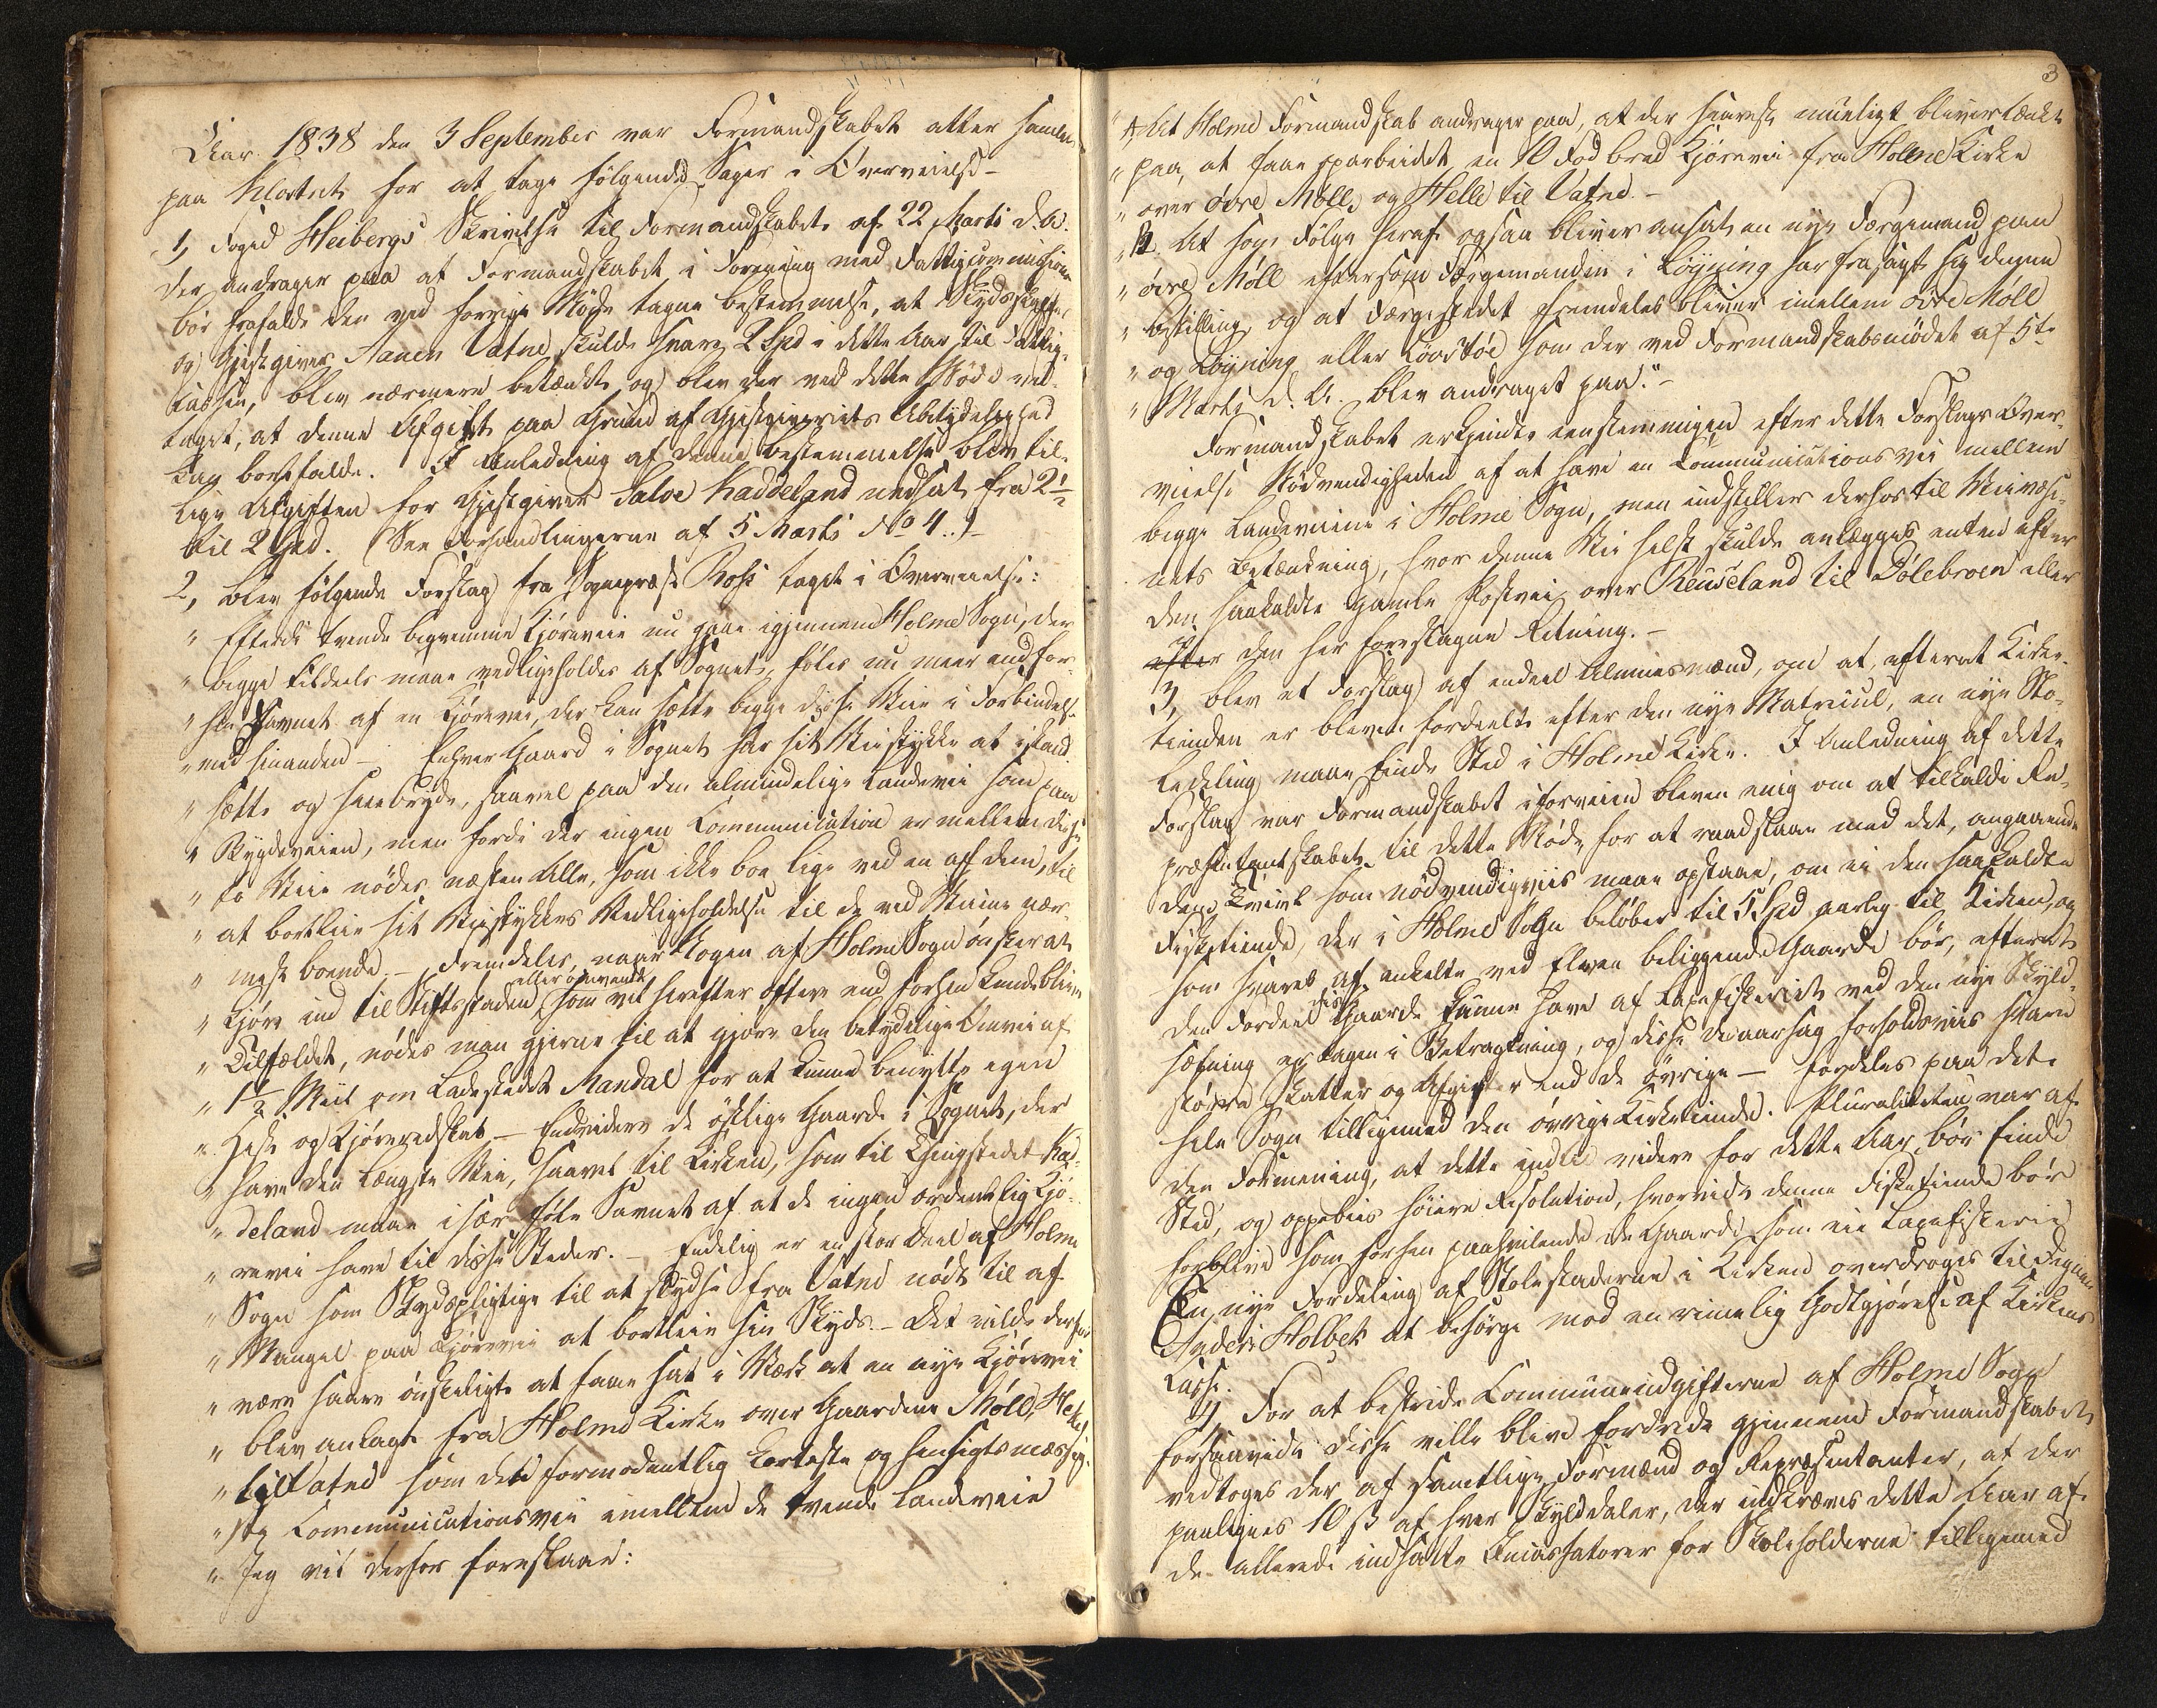 Aar 1838 den 3 September var Formandskabet atter samlet
paa Klostret for at tage følgende Sager i Overveielse –
1, Foged Heibergs Skrivelse til Formandskabet af 22 Marts d. A.
der andrager paa at Formandskabet i Forening med Fattigcommissionen
bør frafalde den ved forrige Møde tagne bestemmelse, at Skydsskaffer
og Gjestgiver Aanen Vatne skulde svare 2 Spd i dette Aar til Fattig-
kassen, blev nærmere betænkt, og blev her ved dette Møde ved-
taget, at denne Afgift paa Grund af Gjestgiveriets Ubetydelighed
kan bortfalde. I Anledning af denne bestemmelse blev til-
lige Afgiften for Gjestgiver Salve Kaddeland nedsat fra 2½
til 2 Spd. (See Forhandlingerne af 5 Marts No 4.)
2, blev følgende Forslag fra Sognepræst Ross taget i Overveielse:
" Efterdi tvende beqvemme Kjøreveie nu gaae igjennem Holme Sogn, der
" begge tildeels maae vedligeholdes af Sognet, føles nu meer end for-
" hen Savnet af en Kjørevei, der kan sætte begge disse Veie i Forbindelse
" med hinanden – Enhver Gaard i Sognet har sit Veistykke at istand
" sætte og sneebryde, saavel paa den almindelige Landevei som paa
" Bygdeveien, men fordi der ingen Communication er mellem disse
" to Veie nødes næsten Alle, som ikke boe lige ved en af dem, til
" at bortleie sit Veistykkes Vedligeholdelse til de ved Veiene nær-
" mest boende. – Fremdeles, naar Nogen af Holme Sogn ønsker at
eller omvendt
" kjøre ind til Stiftsstaden, som vil herefter oftere end forhen kunde blive
" Tilfældet, nødes man gjerne til at gjøre den betydelige Omvei af
" 1½ Miil om Ladestedet Mandal for at kunne benytte egen
" Hest og Kjøreredskab. – Endvidere de østlige Gaarde i Sognet, der
" have den længste Vei, saavel til Kirken, som til Thingstedet Kad-
" deland maae især føle Savnet af at de ingen ordentlig Kjø-
" revei have til disse Steder. – Endelig er en stor Deel af Holme
" Sogn som Skydspligtige til at skydse fra Vatne nødt til af
" Mangel paa Kjørevei at bortleie sin Skyds. – Det vilde derfor
" være saare ønskeligt at faae sat i Værk at en nye Kjørevei
" blev anlagt fra Holme Kirke over Gaardene Møll, Helle
" til Vatne som den formodentlig korteste og hensigtsmæssig-
" ste Communicationsvei imellem de tvende Landeveie
" Jeg vil derfor foreslaae:
3
" A. At Holme Formandskab andrager paa, at der snarest mueligt bliver tænkt
" paa, at faae oparbeidet en 10 Fod bred Kjørevei fra Holme Kirke
" over øvre Møll, og Helle til Vatne. –
" B. At som Følge heraf ogsaa bliver ansat en nye Færgemand paa
" øvre Møll eftersom Færgemanden i Løgning har frasagt sig denne
" bestilling, og at Færgestedet fremdeles bliver imellem øvre Møll
" og Løgning eller Løvstøe som der ved Formandskabsmødet af 5te
" Marts d. A. blev andraget paa." –
Formandskabet erkjendte eenstemmigen efter dette Forslags Over-
veielse Nødvendigheden af at have en Communicationsvei mellem
begge Landeveiene i Holme Sogn, men indstiller derhos til Veivæse-
nets Betænkning, hvor denne Vei helst skulde anlægges enten efter
den saakaldte gamle Postvei over Reuseland til Dølebroen eller
i den her foreslagne Retning. –
3, blev et Forslag af endeel Almuesmænd, om at, efterat Kirke-
tienden er bleven fordeelt efter den nye Matricul, en nye Sto-
ledeling maae finde Sted i Holme Kirke. I Anledning af dette
Forslag var Formandskabet iforveien bleven enig om at tilkalde Re-
præsentantskabet til dette Møde for at raadslaae med det, angaaende
den Tvivl som nødvendigviis maae opstaae, om ei den saakaldte
Fisketiende, der i Holme Sogn beløber til 5 Spd aarlig til Kirken, og
som svares af enkelte ved Elven beliggende Gaarde bør, efterat
den Fordeel disse Gaarde kunne have af Laxefiskeriet ved den nye Skyld-
sætning er tagen i Betragtning, og disse af Aarsag forholdsviis svare
større Skatter og Afgifter end de øvrige – fordeles paa det
hele Sogn tilligemed den øvrige Kirketiende. Pluraliteten var af
den Formening, at dette indtil videre for dette Aar bør finde
Sted, og oppebies høiere Resolution, hvorvidt denne Fisketiende bør
forblive som forhen paahvilende de Gaarde som eie Laxefiskerie
En nye Fordeling af Stolestaderne i Kirken overdroges til Degnen
Anders Holbek at besørge mod en rimelig Godtgjørelse af Kirkens
Kasse.
4, For at bestride Communeudgifterne af Holme Sogn
forsaavidt disse ville blive fordrede gjennem Formandskabet
vedtoges der af samtlige Formænd og Repræsentanter, at der
paalignes 10 ß af hver Skylddaler, der indkræves dette Aar af
de allerede indsatte Incassatorer for Skoleholderne tilligemed